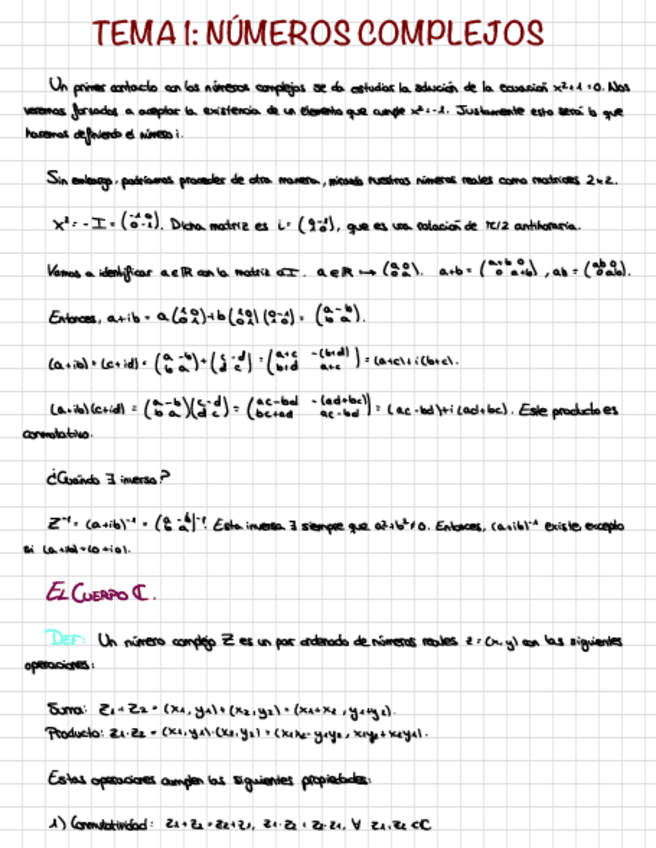 TEMA 1: NÚMEROS COMPLEJOS
Un primer contacto con los números complejos se da estudiar la solución de la ecuación x²+1=0. Nos
veremos forzados a aceptar la existencia de un elemento que cumple x²=-1. Justamente esto será lo que
haremos definiendo el número i.
Sin embargo, podríamos proceder de otra manera, mirando nuestros números reales como matrices 2x2.
x² = -I = (-1 0 / 0 -1). Dicha matriz es i = (0 -1 / 1 0), que es una rotación de π/2 antihoraria.
Vamos a identificar a∈ℝ con la matriz aI. a∈ℝ ↦ (a 0 / 0 a). a+b = (a+b 0 / 0 a+b), ab = (ab 0 / 0 ab).
Entonces, a+ib = a(1 0 / 0 1)+b(1 0 / 0 1)(0 -1 / 1 0) = (a -b / b a).
(a+ib)+(c+id) = (a -b / b a)+(c -d / d c) = (a+c -(b+d) / b+d a+c) = (a+c)+i(b+c).
(a+ib)(c+id) = (a -b / b a)(c -d / d c) = (ac-bd -(ad+bc) / bc+ad ac-bd) = (ac-bd)+i(ad+bc). Este producto es
conmutativo.
¿Cuándo ∃ inversa?
Z⁻¹ = (a+ib)⁻¹ = (a -b / b a)⁻¹. Esta inversa ∃ siempre que a²+b²≠0. Entonces, (a+ib)⁻¹ existe, excepto
si (a+ib)=(0+i0).
EL CUERPO ℂ.
DEF: Un número complejo Z es un par ordenado de números reales z=(x,y) con las siguientes
operaciones:
Suma: Z₁+Z₂ = (x₁,y₁)+(x₂,y₂) = (x₁+x₂, y₁+y₂).
Producto: Z₁·Z₂ = (x₁,y₁)·(x₂,y₂) = (x₁x₂-y₁y₂, x₁y₂+x₂y₁).
Estas operaciones cumplen las siguientes propiedades:
1) Conmutatividad: Z₁+Z₂=Z₂+Z₁, Z₁·Z₂=Z₂·Z₁, ∀ Z₁,Z₂∈ℂ